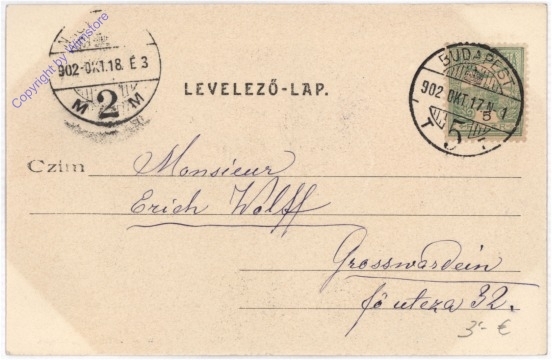 Copyright by Wimstore
902·OKT.18. É3
M 2 M
LEVELEZŐ-LAP.
BUDAPEST
902 OKT.17 N 1
5
T 5
Czím
Monsieur
Erich Wolff
Grosswardein
fő utcza 32.
3.- €